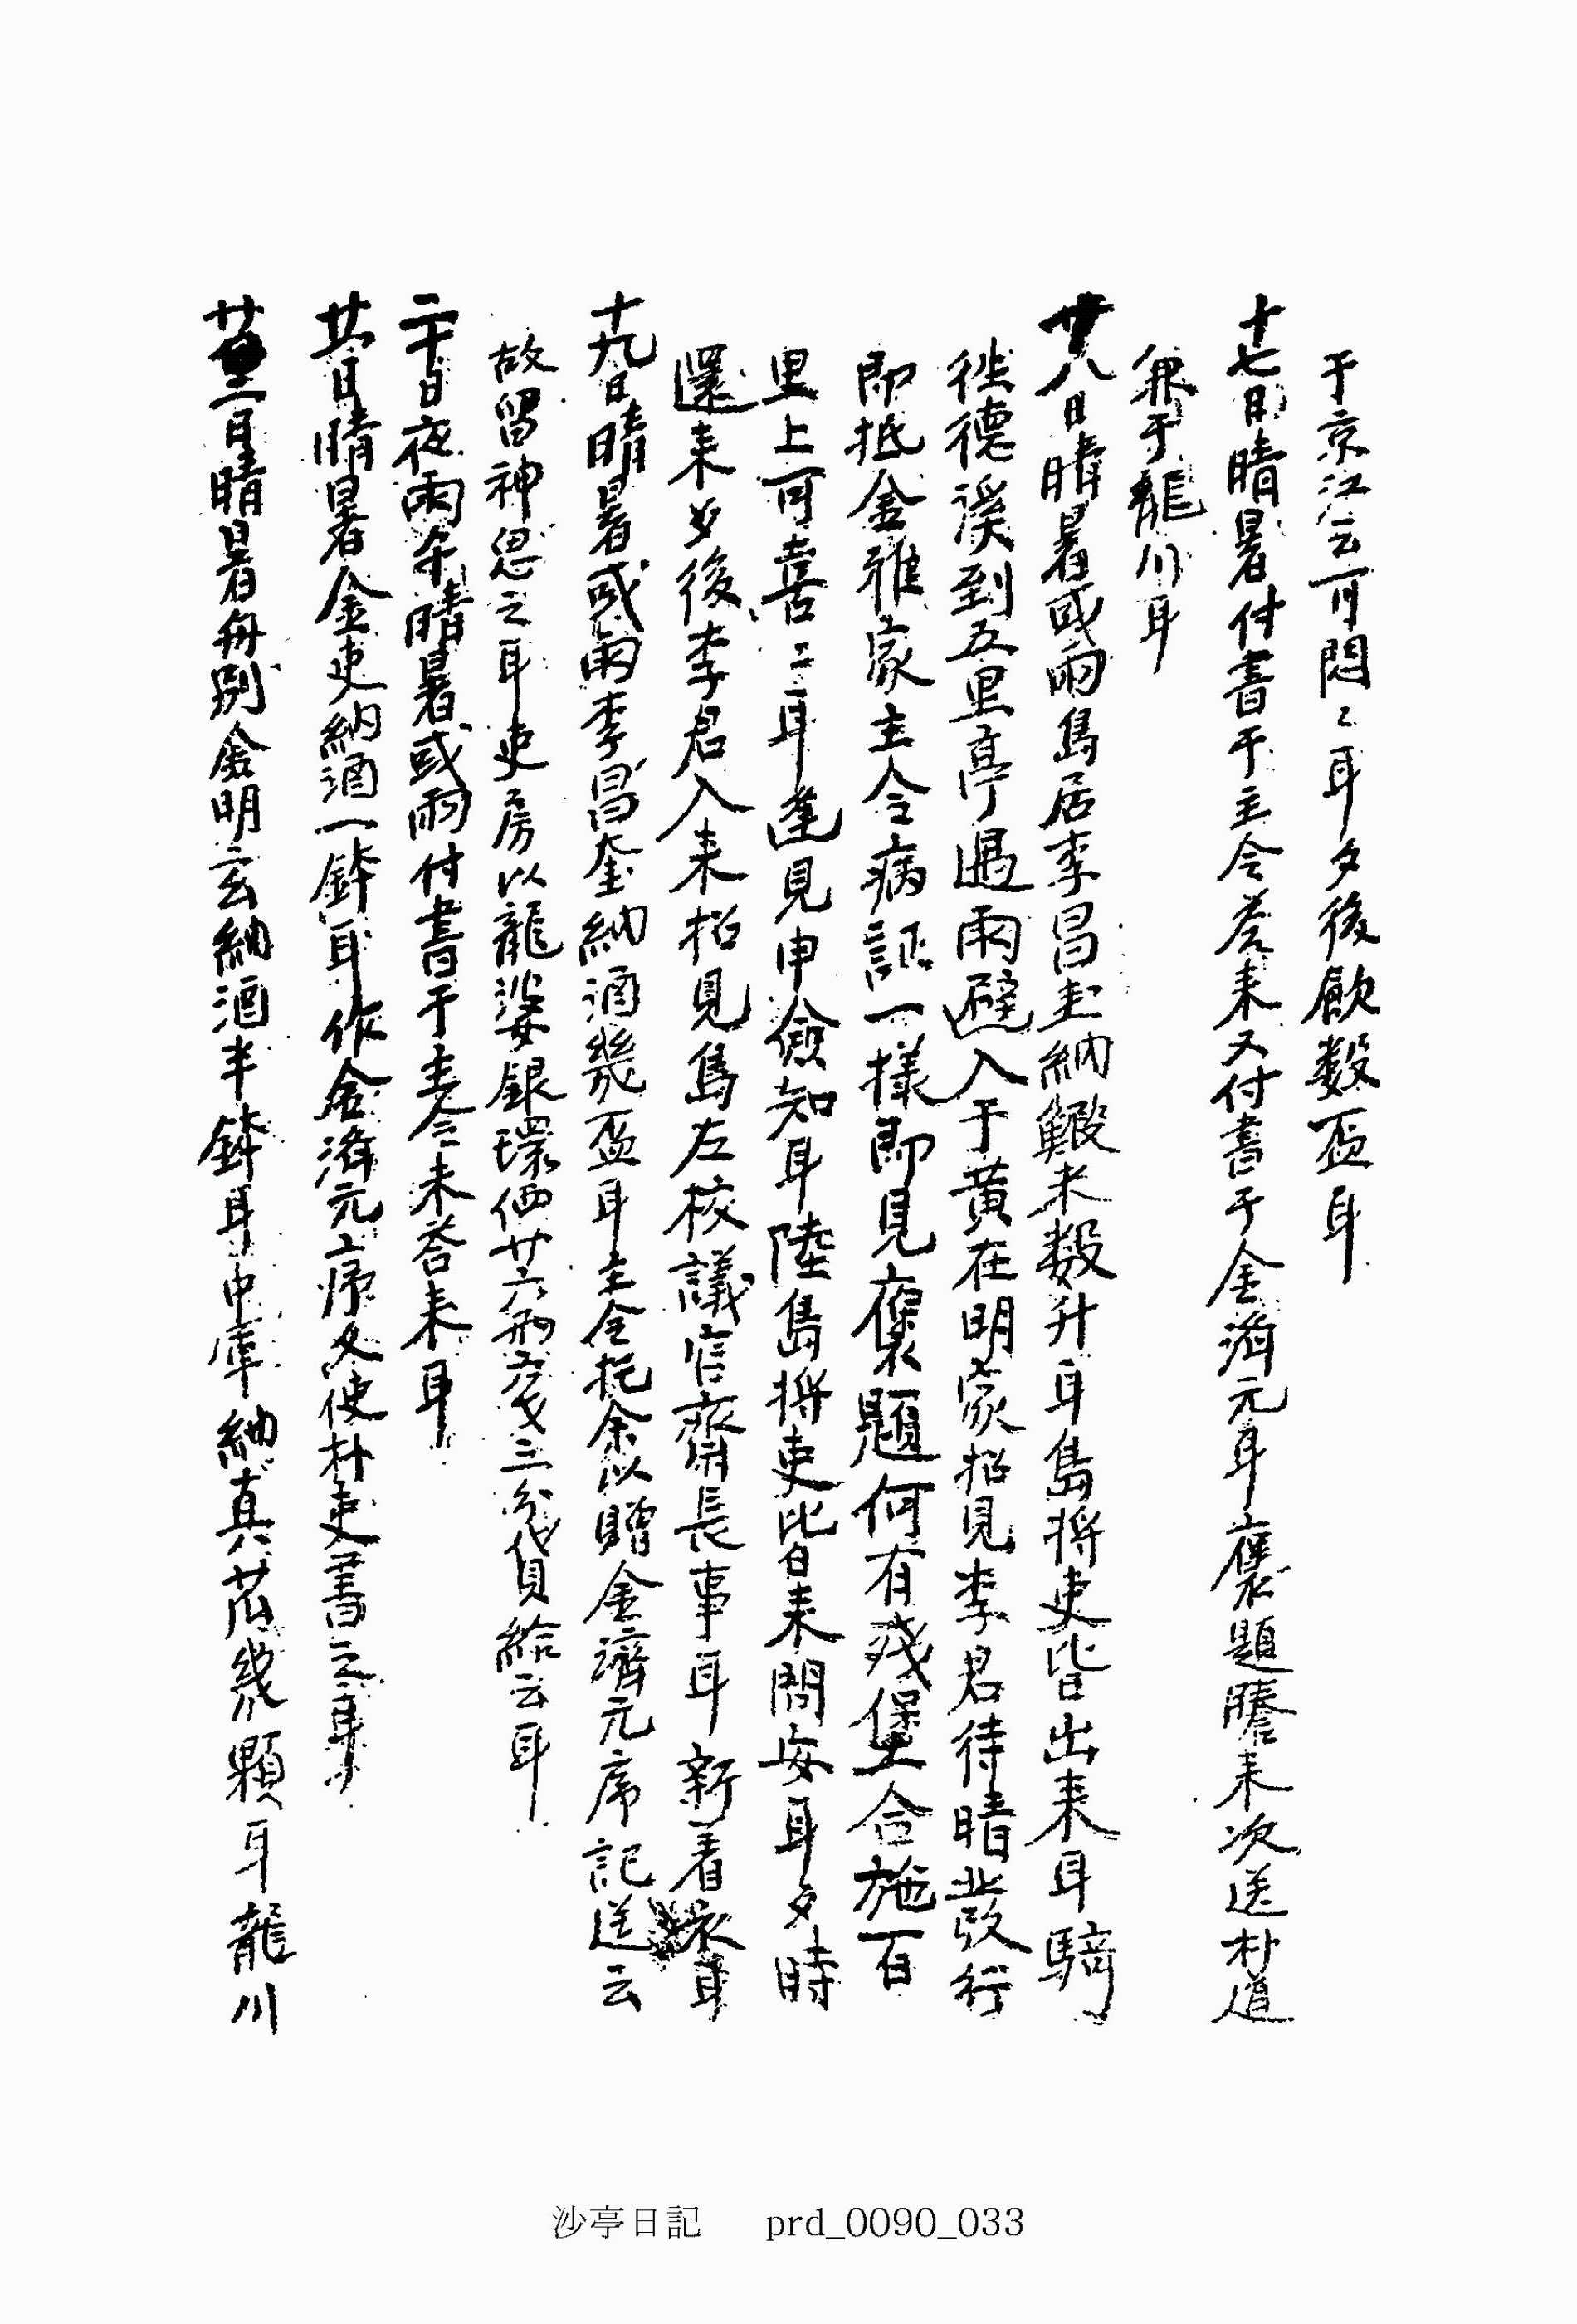 于京江云可悶〻耳夕後飮数盃耳
十七日晴暑付書于主令答来又付書于金濟元耳褒題謄来次送朴道
兼于龍川耳
十八日晴暑或雨島居李昌圭納鰕米数升耳島將吏皆出来耳騎
徃德溪到五里亭遇雨避入于黄在明家招見李君待晴發行
即抵金雅家主令病証一樣即見褒題何有残堡合施百
里上可喜〻耳逢見申儉知耳陸島將吏皆来問安耳夕時
還来夕後李君入来招見島左校議官齋長事耳新着衣耳
十九日晴暑或雨李昌奎納酒幾盃耳主令托余以贈金濟元序記送云
故留神思之耳吏房以龍婆銀環価廿六兩戔三分貸給云耳
二十日夜雨午晴暑或雨付書于主令未答来耳
廿一日晴暑金吏納酒一鉢耳作金濟元序文使朴吏書之耳
廿二日晴暑舟別金明玄納酒半鉢耳中庫納真苽幾顆耳龍川
沙亭日記 prd_0090_033